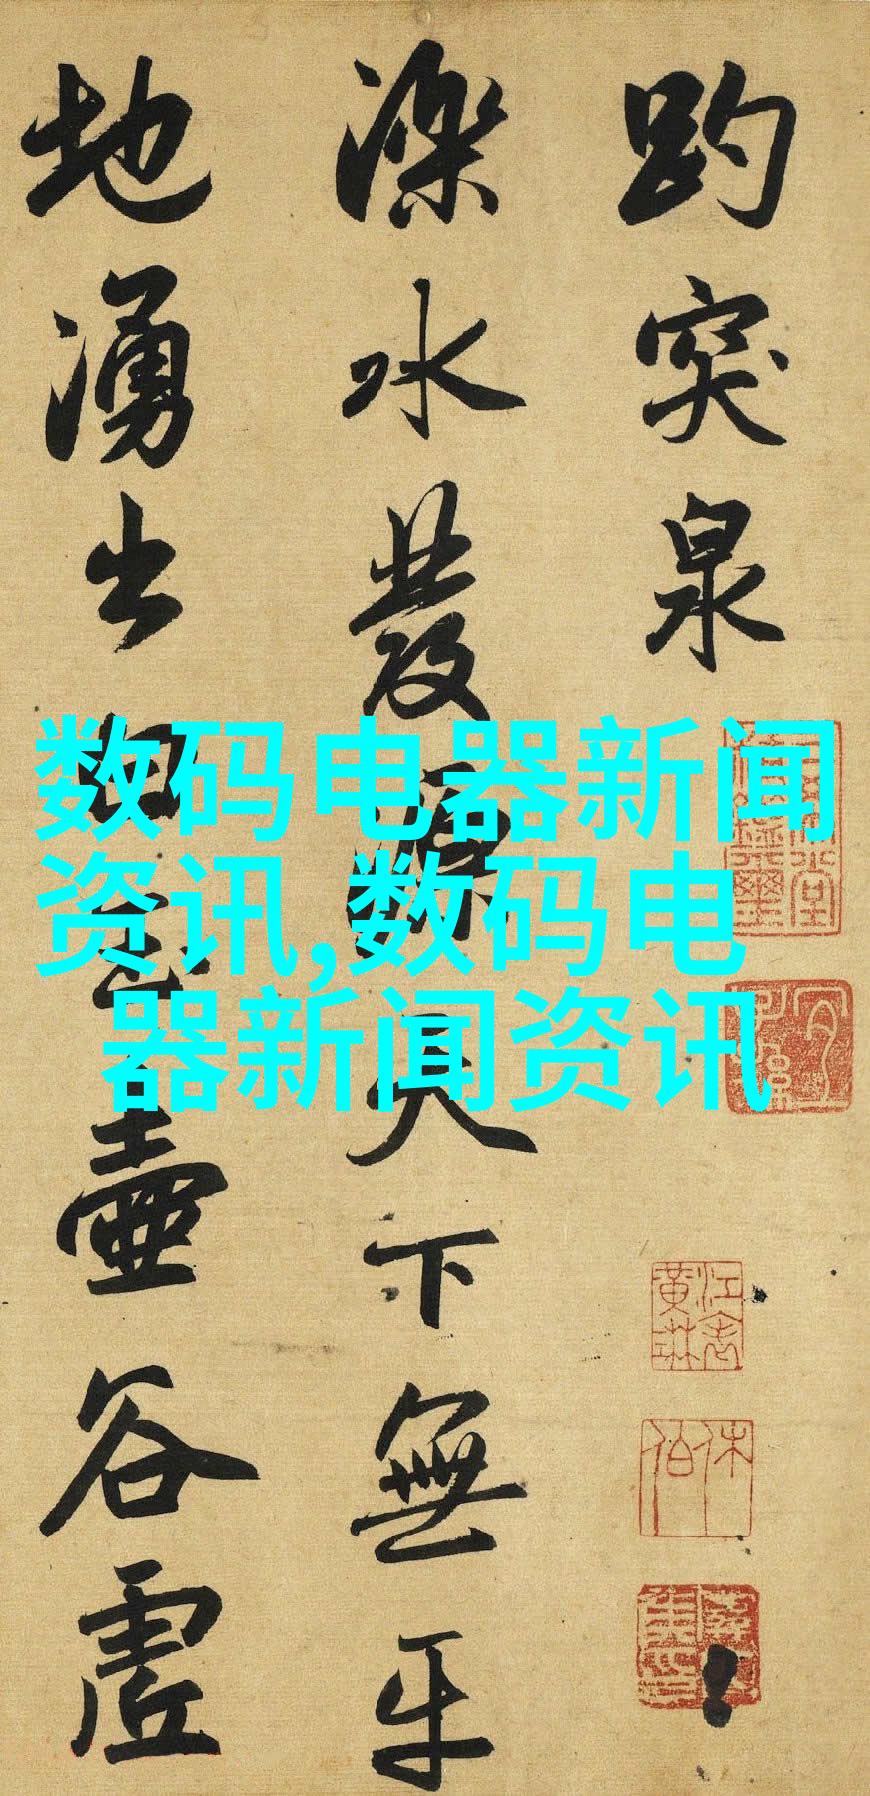 趵突泉
濼水發源天下無平
地湧出白玉壺谷虛
数码电器新闻
资讯,数码电
器新闻资讯
江表黃琳
休伯